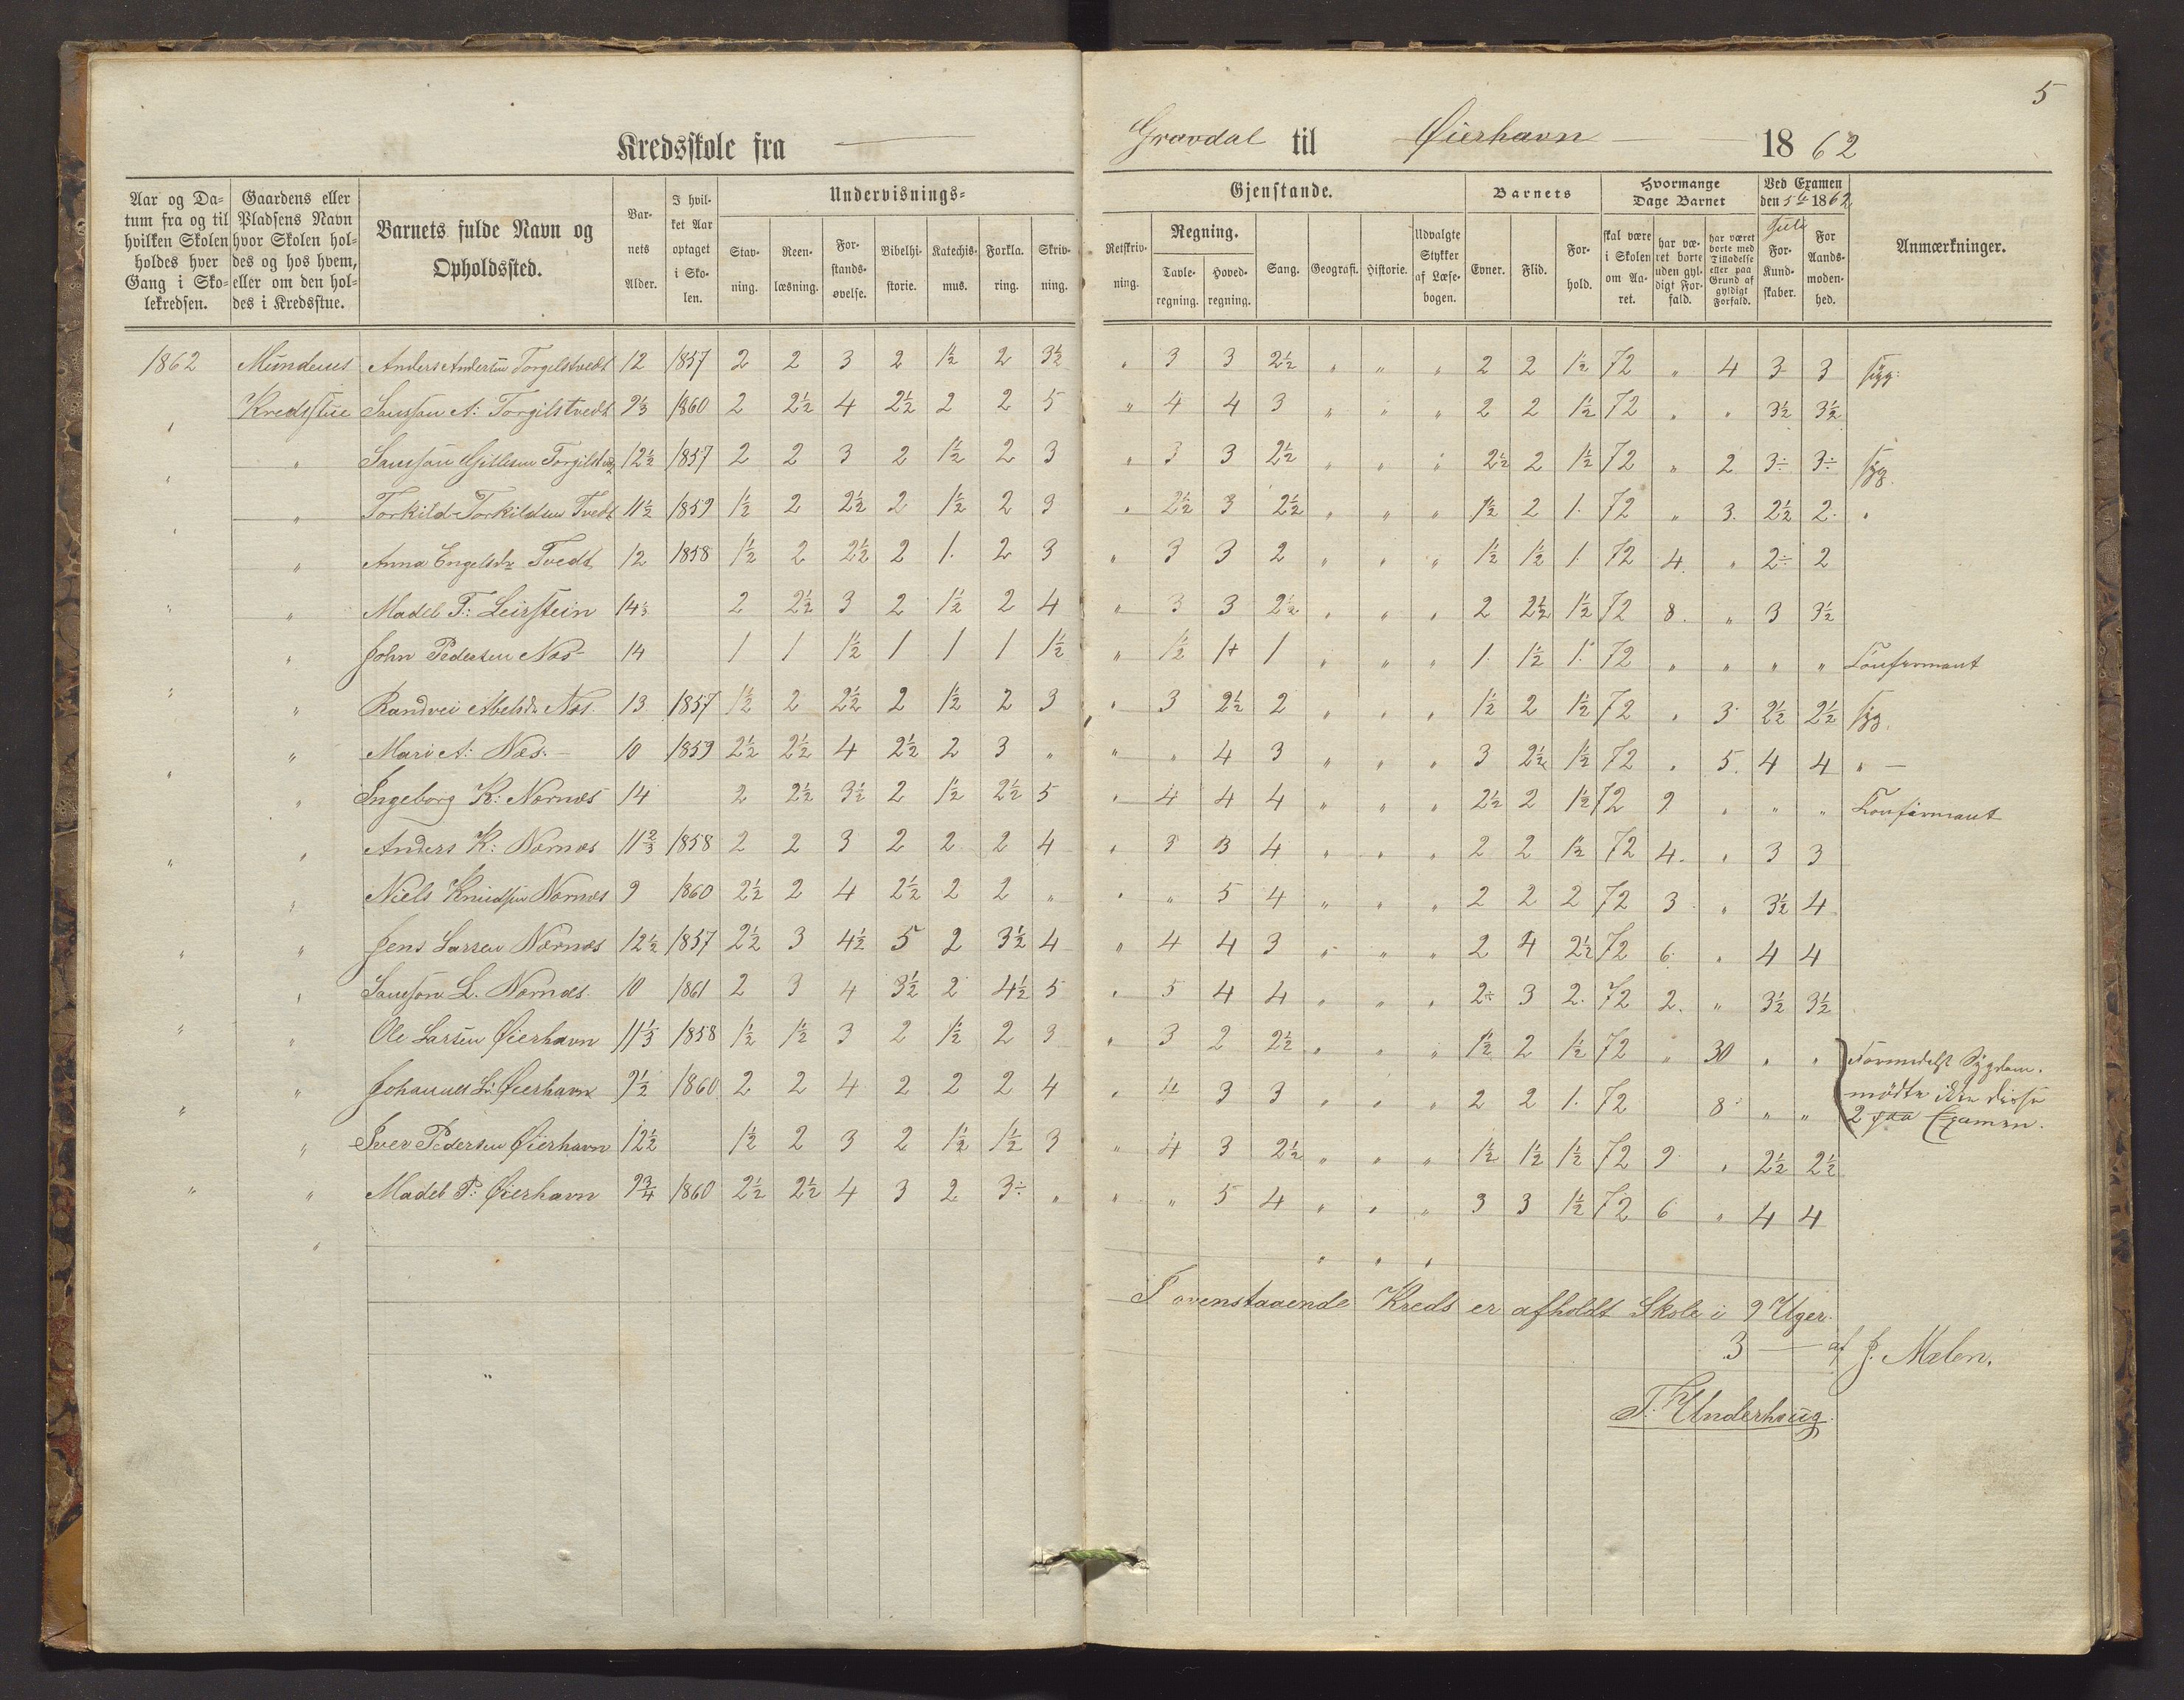 5
Kredsskole fra — Gravdal til Øierhavn — 1862
Aar og Datum fra og til hvilken Skolen holdes hver Gang i Skolekredsen. | Gaardens eller Pladsens Navn hvor Skolen holdes og hos hvem, eller om den holdes i Kredsstue. | Barnets fulde Navn og Opholdssted. | Barnets Alder. | I hvilket Aar optaget i Skolen. | Undervisnings-Gjenstande. | Stavning. | Reenlæsning. | Forstandsøvelse. | Bibelhistorie. | Katechismus. | Forklaring. | Skrivning. | Retskrivning. | Regning. | Tavleregning. | Hovedregning. | Sang. | Geografi. | Historie. | Udvalgte Stykker af Læsebogen. | Barnets | Evner. | Flid. | Forhold. | Hvormange Dage Barnet | skal være i Skolen om Aaret. | har været borte uden gyldigt Forfald. | har været borte med Tilladelse eller paa Grund af gyldigt Forfald. | Ved Examen den 5te Juli 1862 | For Kundskaber. | For Aandsmodenhed. | Anmærkninger.
1862 | Kredsstue | Anders Andersen Torgelstvedt | 12 | 1857 | 2 | 2 | 3 | 2 | 1½ | 2 | 3½ | " | 3 | 3 | 2½ | " | " | " | 2 | 2 | 1½ | 72 | " | 4 | 3 | 3 | syg.
" | Samson A: Torgilstvedt | 9⅓ | 1860 | 2 | 2½ | 4 | 2½ | 2 | 2 | 5 | " | 4 | 4 | 3 | " | " | " | 2 | 2 | 1½ | 72 | " | " | 3½ | 3½
" | " | Samson | 12½ | 1857 | 2 | 2 | 3 | 2 | 1½ | 2 | 3 | " | 3 | 3 | 2½ | " | " | " | 2½ | 2 | 1½ | 72 | " | 2 | 3÷ | 3÷ | syg.
" | " | Torkild Torkildsen Tvedt | 11½ | 1859 | 1½ | 2 | 2½ | 2 | 1½ | 2 | 3 | " | 2½ | 3 | 2½ | " | " | " | 1½ | 2 | 1. | 72 | " | 3. | 2½ | 2. | "
" | Anna Engelsdr Tvedt | 12 | 1858 | 1½ | 2 | 2½ | 2 | 1. | 2 | 3 | " | 3 | 3 | 2 | " | " | " | 1½ | 1½ | 1 | 72 | 4. | " | 2÷ | 2
" | " | Madel T: Leirstein | 14⅓ | 2 | 2½ | 3 | 2 | 1½ | 2 | 4 | " | 3 | 3 | 2½ | " | " | " | 2 | 2½ | 1½ | 72 | 8. | " | 3 | 3½
" | John Pedersen Næs- | 14 | 1 | 1 | 1½ | 1 | 1 | 1 | 1½ | " | 1½ | 1+ | 1 | " | " | " | 1. | 1½ | 1. | 72 | " | " | " | " | Confirmant
" | " | Randvei Abelsdr Næs. | 13 | 1857 | 1½ | 2 | 2½ | 2 | 1½ | 2 | 3 | " | 3 | 2½ | 2 | " | " | " | 1½ | 2 | 1½ | 72 | " | 3 | 2½ | 2½ | syg.
" | Mari A: Næs. — | 10 | 1859 | 2½ | 2½ | 4 | 2½ | 2 | 3 | " | " | " | 4 | 3 | " | " | " | 3 | 2½ | 1½ | 72 | " | 5. | 4 | 4 | " —
" | " | Ingeborg K: Nornæs | 14 | 2 | 2½ | 3½ | 2 | 1½ | 2½ | 5 | " | 4 | 4 | 4 | " | " | " | 2½ | 2 | 1½ | 72 | 9 | " | " | " | Confirmant
" | " | Anders K: Nornæs | 11⅔ | 1858 | 2 | 2 | 3 | 2 | 2 | 2 | 4 | " | 3 | 3 | 4 | " | " | " | 2 | 2 | 1½ | 72 | 4. | " | 3 | 3
" | Niels Knudsen Nornæs | 9 | 1860 | 2½ | 2 | 4 | 2½ | 2 | 2 | " | " | " | 5 | 4 | " | " | " | 2 | 2 | 2 | 72 | 3 | " | 3½ | 4
" | " | Jens Larsen Nornæs | 12½ | 1857 | 2½ | 3 | 4½ | 5 | 2 | 3½ | 4 | " | 4 | 4 | 3 | " | " | " | 2 | 4 | 2½ | 72 | 6 | " | 4 | 4
" | Samson L. Nornæs | 10 | 1861 | 2 | 3 | 4 | 3½ | 2 | 4½ | 5 | " | 5 | 4 | 4 | " | " | " | 2÷ | 3 | 2. | 72 | 2. | " | 3½ | 3½
" | " | Ole Larsen Øierhavn | 11⅓ | 1858 | 1½ | 1½ | 3 | 2 | 1½ | 2 | 3 | " | 3 | 2 | 2½ | " | " | " | 1½ | 2 | 1½ | 72 | " | 30 | " | " | Formedelst Sygdom
" | " | Johannes L: Øierhavn | 9½ | 1860 | 2 | 2 | 4 | 2 | 2 | 2 | 4 | " | 4 | 3 | 3 | " | " | " | 2 | 2 | 1. | 72 | 8 | " | " | mødte ikke disse
2 paa Examen.
" | Iver Pedersen Øierhavn | 12½ | 1½ | 2 | 3 | 2 | 1½ | 1½ | 3 | " | 4 | 3 | 2½ | " | " | " | 1½ | 1½ | 1½ | 72 | 9 | " | 2½ | 2½
" | " | Madel P: Øierhavn | 9¾ | 1860 | 2½ | 2½ | 4 | 3 | 2 | 3÷ | " | " | " | 5 | 4 | " | " | " | 3 | 3 | 1½ | 72 | 6 | " | 4 | 4
I ovenstaaende Kreds er afholdt Skole i 9 Uger.
3 — af J. Mælen.
T. Underhoug.